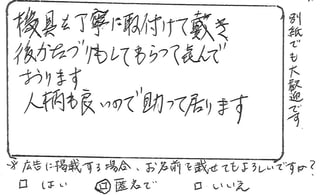 機具も丁寧に取付けて戴き
後かたづけもしてもらって喜んで
おります
人柄も良いので助って居ります
別紙でも大歓迎です。
※広告に掲載する場合、お名前を載せてもよろしいですか?
□ はい ☑ 匿名で □ いいえ